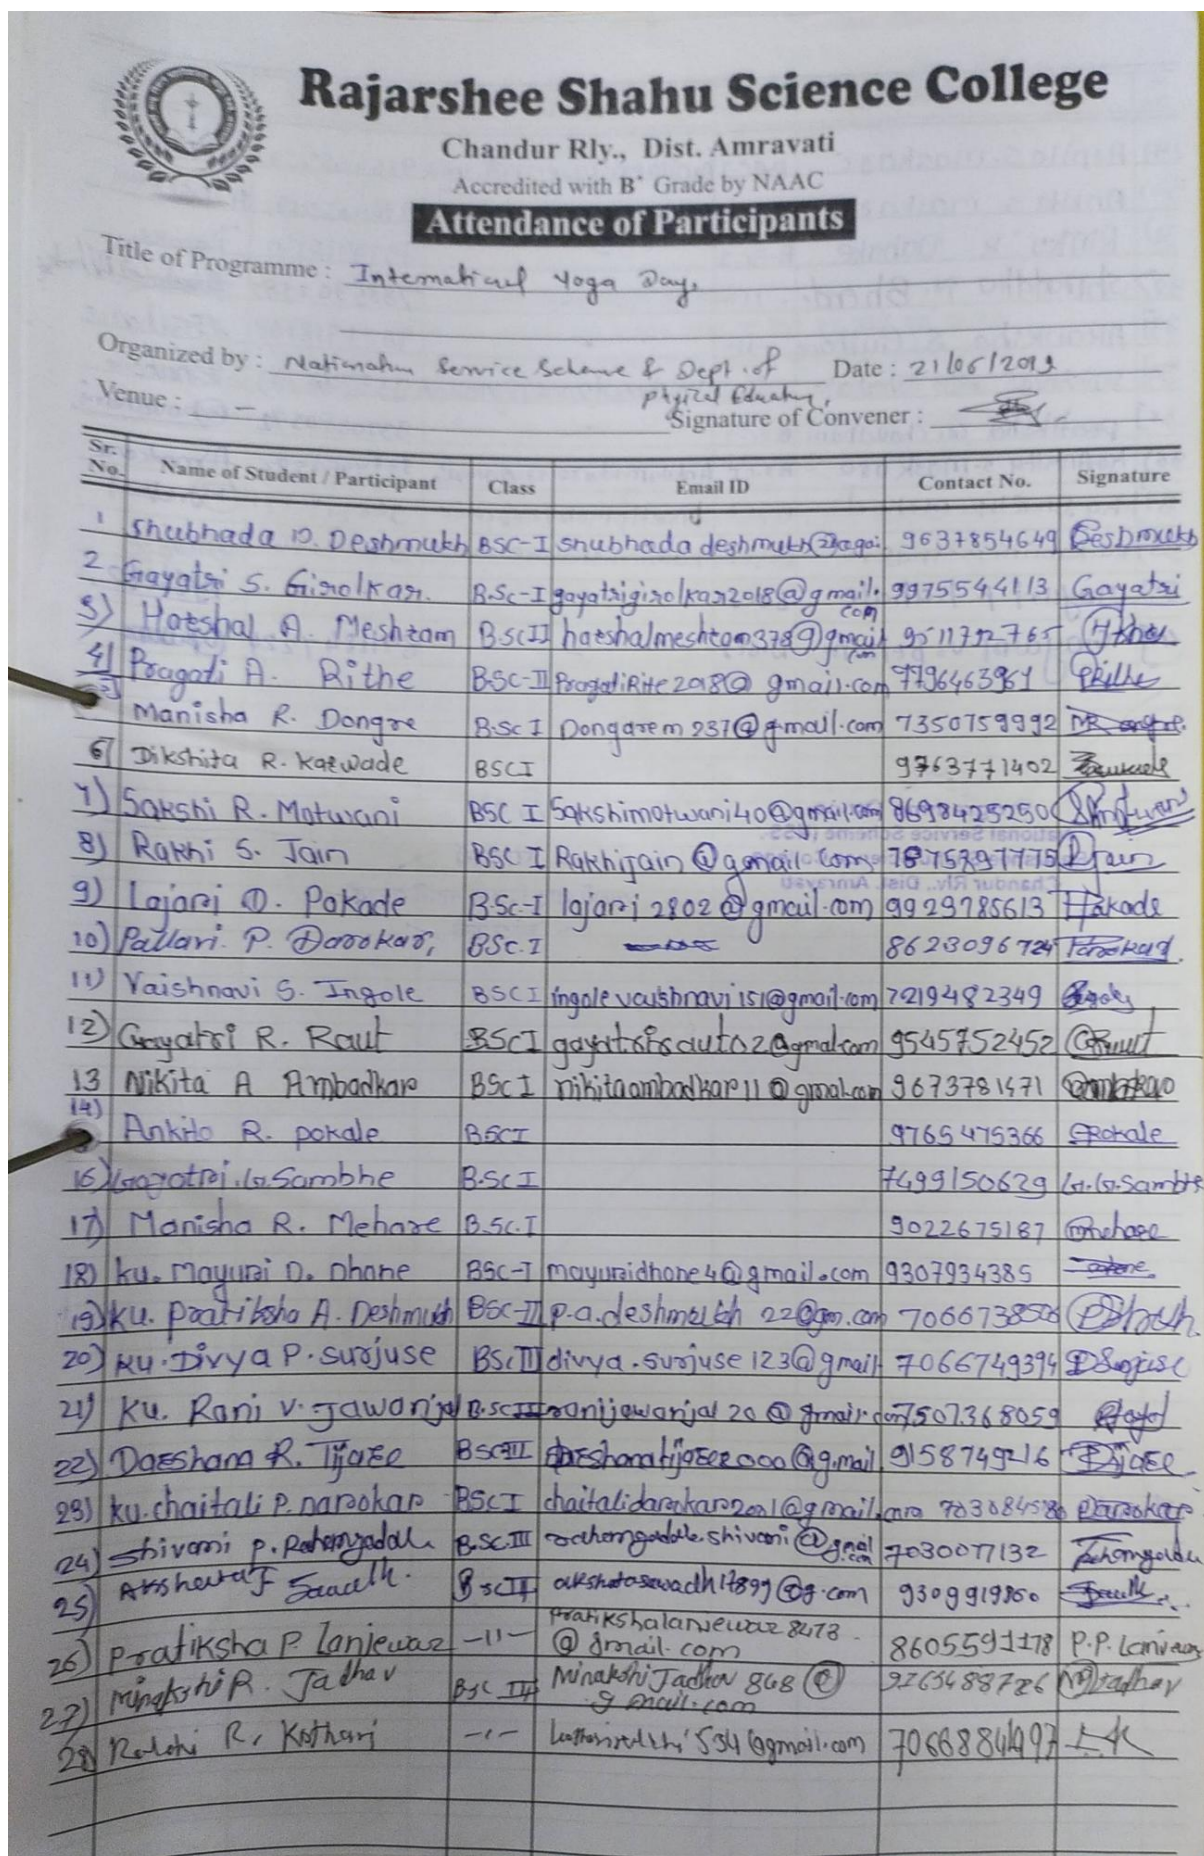 Rajarshee Shahu Science College
Chandur Rly., Dist. Amravati
Accredited with B+ Grade by NAAC
Attendance of Participants
Title of Programme : International Yoga Day.
Organized by : National Service Scheme & Dept. of Date : 21/06/2019
Physical Education,
Venue : — Signature of Convener :
Sr. No. Name of Student / Participant Class Email ID Contact No. Signature
1 Shubhada D. Deshmukh BSC-I shubhada deshmukh 9637854649 Deshmukh
2 Gayatri S. Girolkar. B.Sc-I gayatrigirolkar2018@gmail.com 9975544113 Gayatri
3) Harshal A. Meshram B.Sc II harshalmeshram378@gmail.com 9511792765
4) Pragati A. Rithe B.SC-II PragatiRite2018@gmail.com 7796463961 PRithe
5) Manisha R. Dongre B.Sc I Dongarem237@gmail.com 7350759992
6) Dikshita R. Karwade BSCI 9763771402
7) Sakshi R. Motwani BSC I Sakshimotwani40@gmail.com 8698425250
8) Rakhi S. Jain BSC I Rakhijain@gmail.com Jain
9) Lajari D. Pokade B.Sc-I lajari2802@gmail.com 9929785613 Pokade
10) Pallavi. P. Darokar, BSc.I 8623096724
11) Vaishnavi S. Ingole BSCI ingole vaishnavi151@gmail.com 7219482349
12) Gayatri R. Raut BSCI gayatriraut02@gmal.com 9545752452 GRaut
13 Nikita A Ambadkar BSCI nikitaambadkar11@gmal.com 9673781471
14) Ankita R. Pokale BSCI 9765475366 Pokale
16) Gayatri. G. Sambhe B.SCI 7499150629 G.G.Sambhe
17) Manisha R. Mehare B.SC.I 9022675187 Mehare
18) Ku. Mayuri D. Dhone BSC-I mayuridhone4@gmail.com 9307934385
19) Ku. Pratiksha A. Deshmukh BSC-III p.a.deshmukh 22@gm.com 7066738506
20) Ku. Divya P. Surjuse BSc III divya.surjuse123@gmail 7066749394 DSurjuse
21) Ku. Rani V. Jawanjal B.SC III ranijawanjal20@gmail.com 7507368059
22) Darshana R. Tijare BSCIII darshanatijare2000@g.mail 9158749216 DTijare
23) Ku. Chaitali P. Darokar BSCI chaitalidarokar2001@gmail.com Darokar
24) Shivani P. Rahangadale B.SC.III rahangadale.shivani@gmail.com 7030077132
25) Akshata Sawadh. BSCIII akshatasawadh17899@g.com 9309919860
26) Pratiksha P. Lanjewar —11— Pratikshalanjewar8478
@gmail.com 8605591178 P.P. Lanjewar
27) Minakshi R. Jadhav BSC III MinakshiJadhav868@
gmail.com MJadhav
28) R. Kothari —"— 534@gmail.com